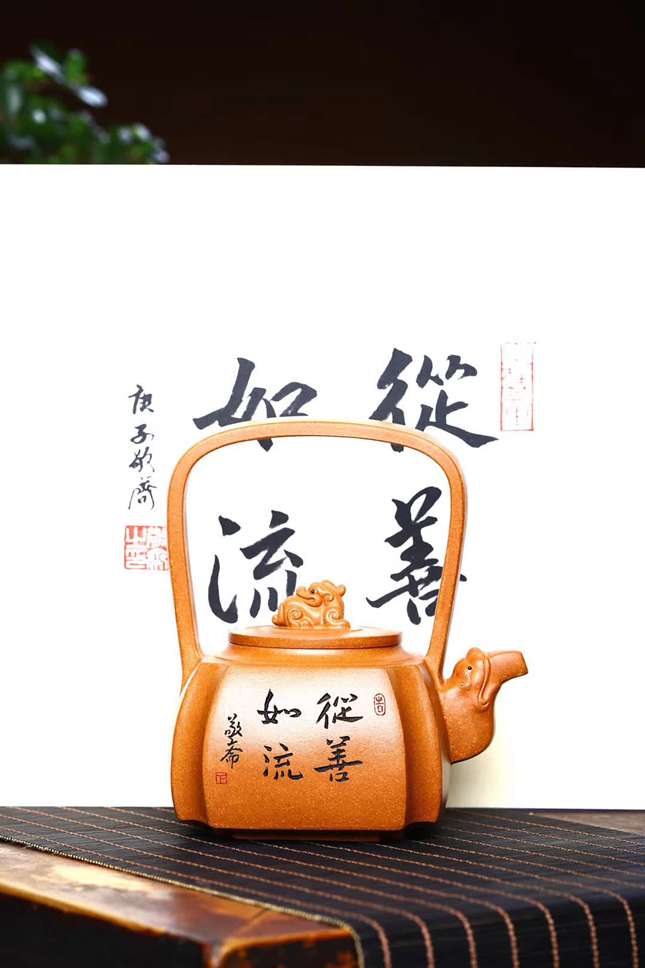 從善
如流
庚子敬齋
從善
如流
敬齋